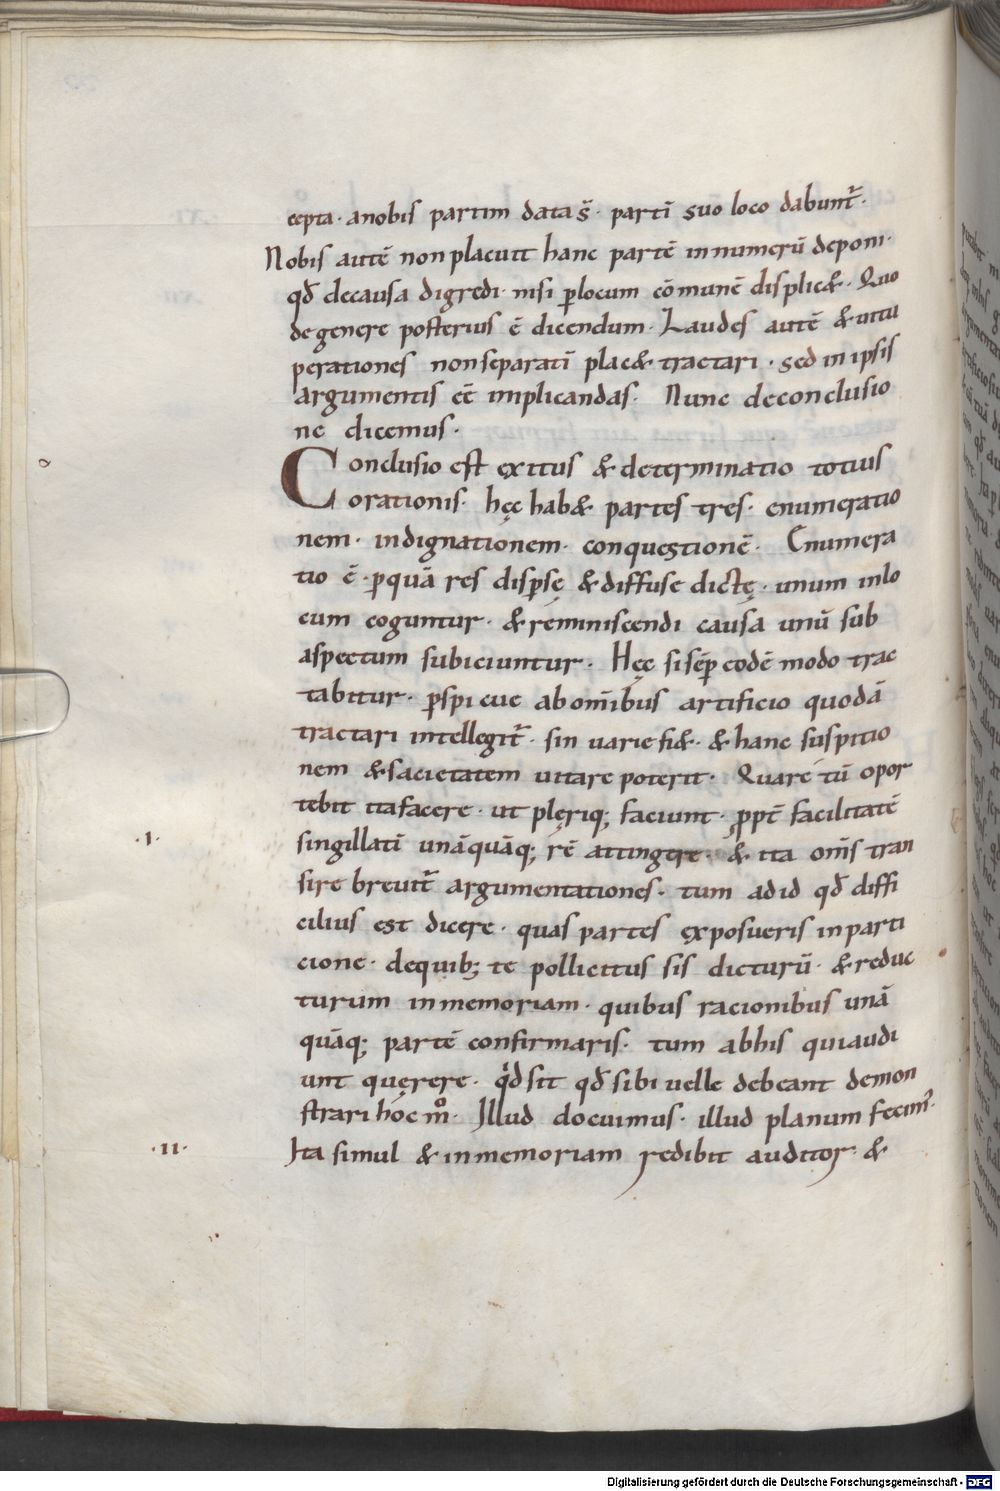 cepta · anobis partim data s̄ · partī suo loco dabunt̄ ·
Nobis autē non placuit hanc partē innumerū deponi ·
qđ decausa digredi · nisi ꝑlocum cōmunē displic& · Quo
degenere posterius ē dicendum · Laudes autē & uitu
perationes nonseparatī plac& tractari · sed in ipsis
argumentis eē implicandas · Nunc deconclusio
ne dicemus ·
Conclusio est exitus & determinatio totius
orationis · hęc hab& partes tres · enumeratio
nem · indignationem · conquęstionē · Enumera
tio ē · ꝑquā res disꝑsę & diffuse dictę · unum inlo
cum coguntur · & reminiscendi causa unū sub
aspectum subiciuntur · Hęc sisēp eodē modo trac
tabitur · ꝑspicue ab om̄ibus artificio quodā
tractari intellegit̄ · sin uarie fi& · & hanc suspitio
nem & sacietatem uitare poterit · Quare tū opor
tebit itafacere · ut plęriq; faciunt · ꝓpt̄ facilitatē
·I· singillatī unāquāq; rē attingere · & ita om̄s tran
sire breuit̄ argumentationes · tum ad id qđ diffi
cilius est dicere · quas partes exposueris inparti
cione · dequib; te pollicitus sis dicturū · & reduc
turum inmemoriam · quibus racionibus unā
quāq; partē confirmaris · tum abhis quiaudi
unt quęrere · qđsit qđ sibi uelle debeant demon
strari hoc mͦ · Illud docuimus · illud planum fecim᾿ ·
·II· Ita simul & inmemoriam redibit auditor · &
Digitalisierung gefördert durch die Deutsche Forschungsgemeinschaft - DFG